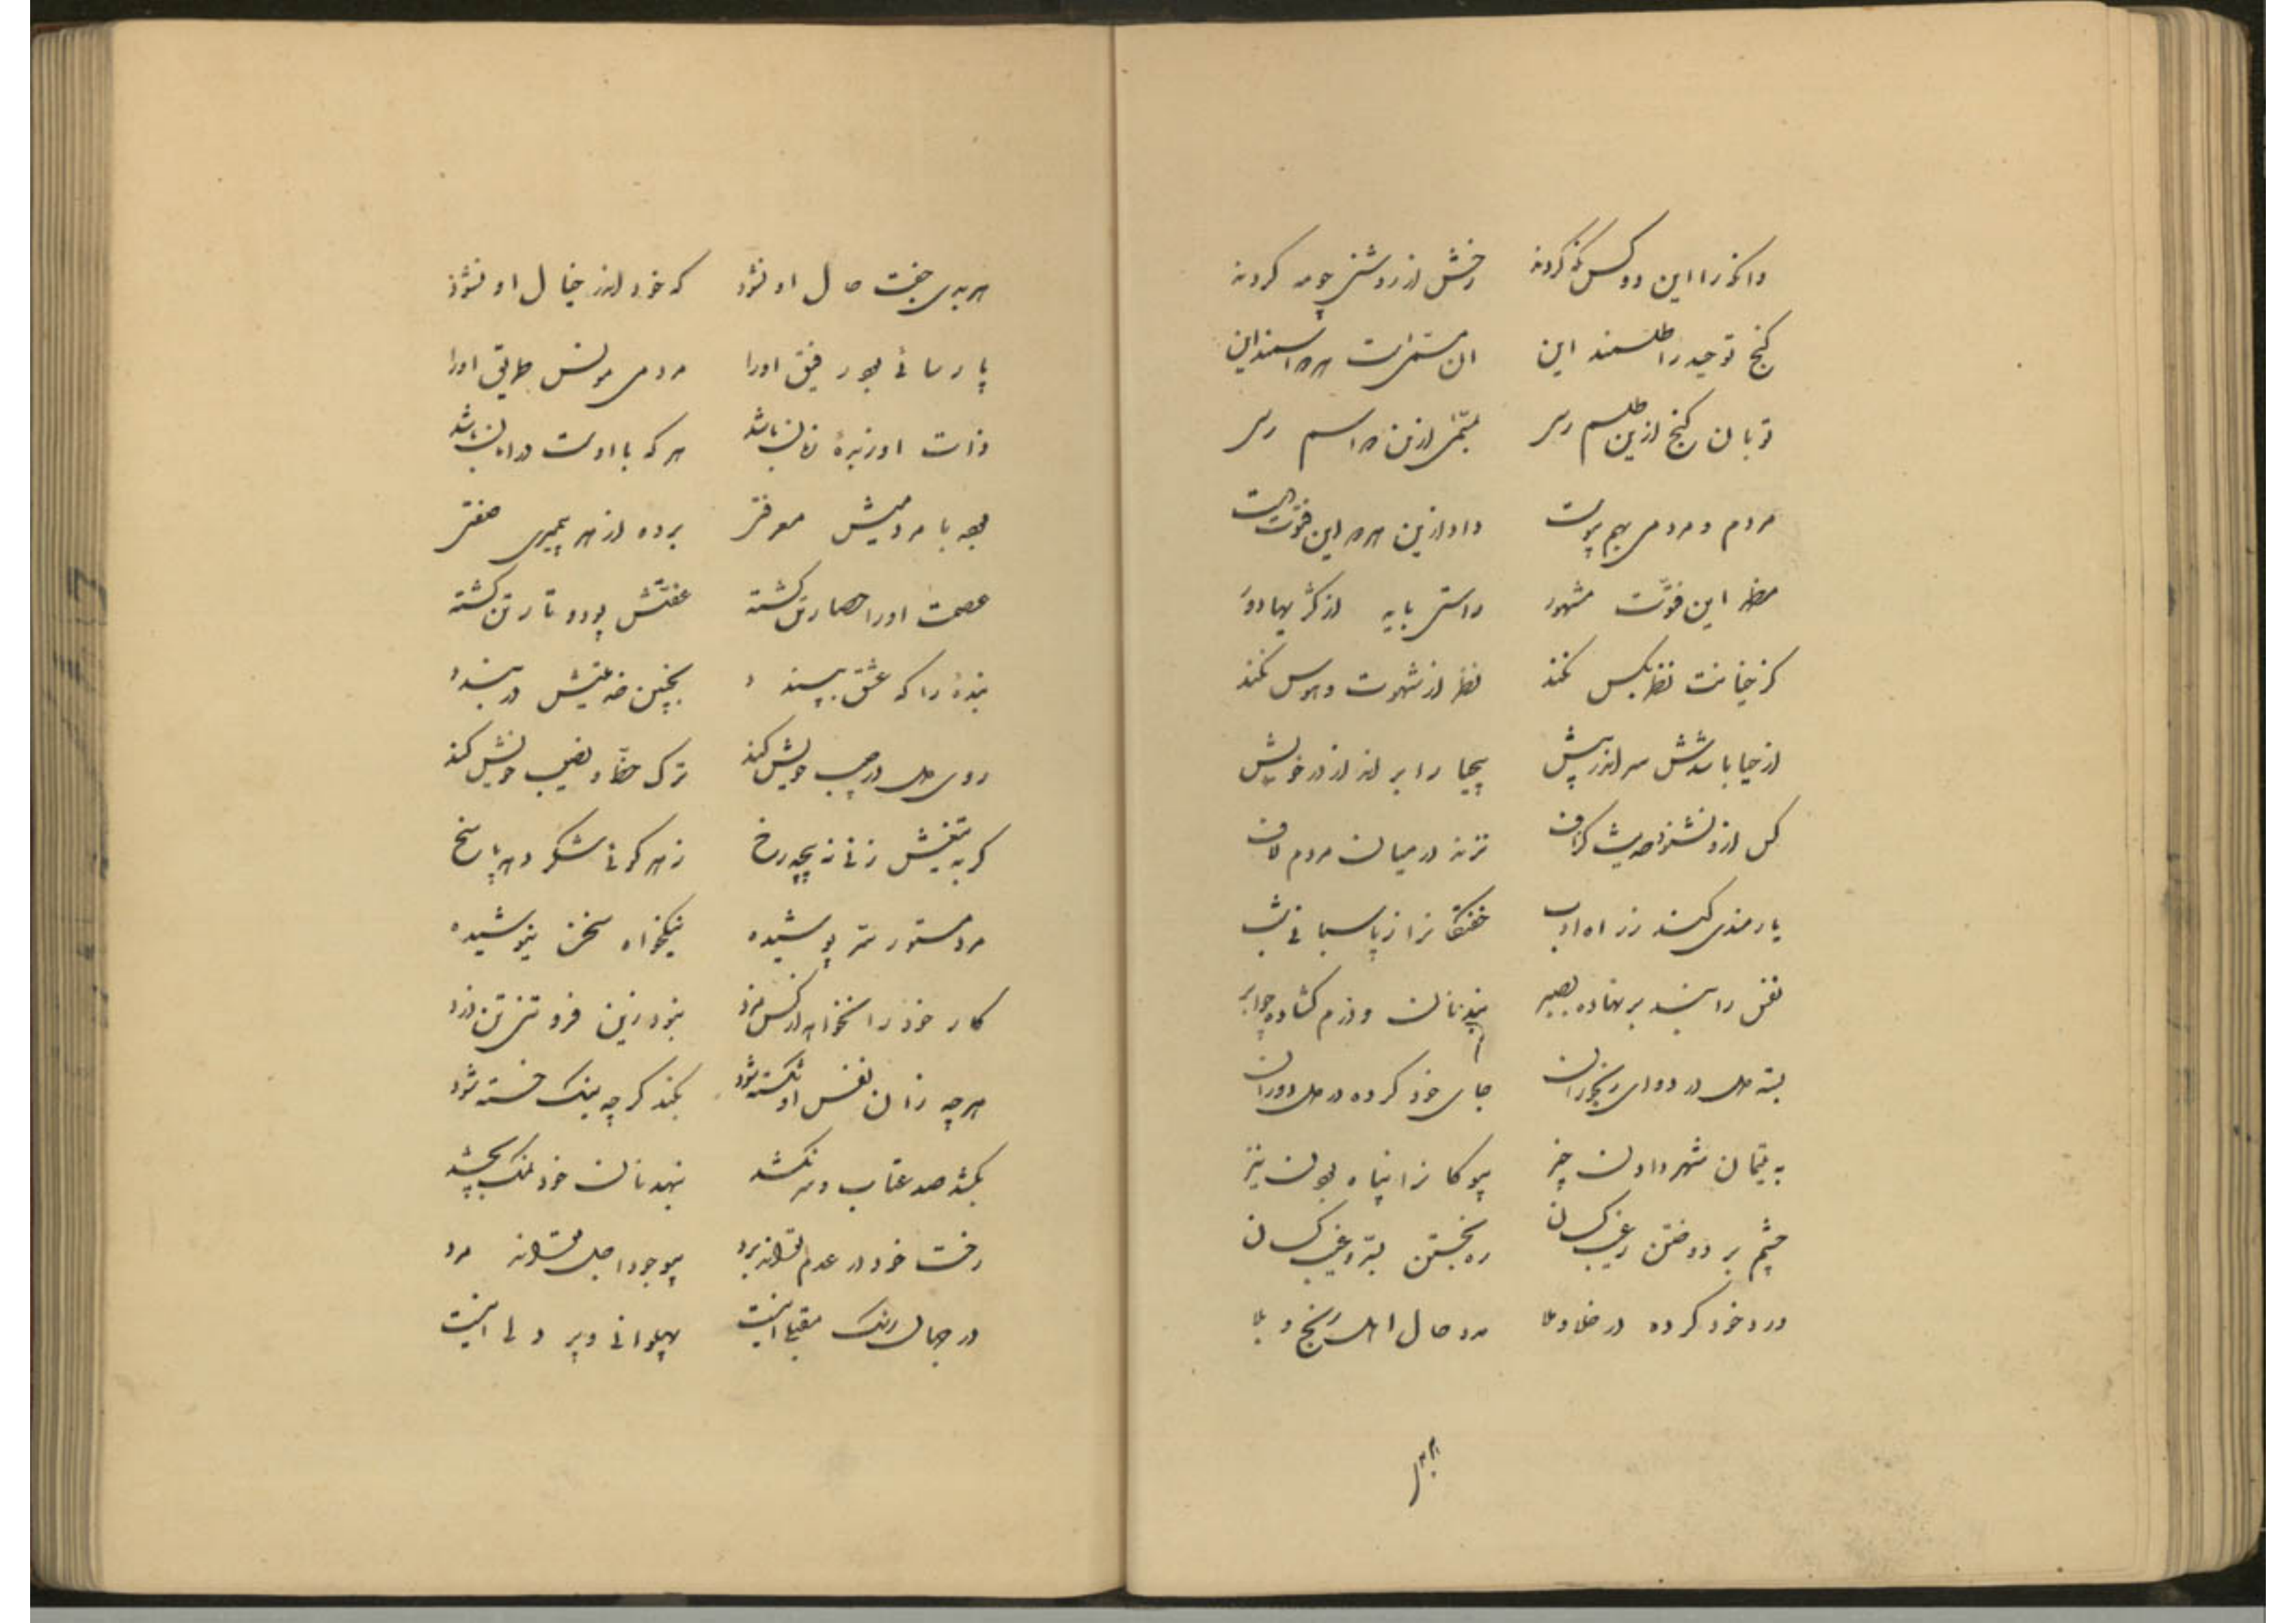 وانکه را این دو کس نکو کردند رخش از روشنی چو مه کردند
گنج توحید را طلسمند این ان مسمی است هر دو اسمند این
تو بان گنج ازین طلسم رسی بمسمی ازین دو اسم رسی
مردم و مردمی بهم پیوست داد ازین هر دو این فتوت دست
مظهر این فتوت مشهور راستی باید از کژیها دور
کز خیانت نظر بکس نکند نظر از شهوت و هوس نکند
از حیا باشدش سر اندر پیش بیحیا را براند از در خویش
کس ازو نشنود حدیث گزاف نزند در میان مردم لاف
یارمندی کند ز راه ادب خفتگانرا ز پاسبانی شب
نفس را بند بر نهاده بصبر بند نان و درم گشاده چو ابر
بسته دل در دوای رنجوران جای خود کرده در دل دوران
به یتیمان شهر دادن چیز بیوگانرا پناه بودن نیز
چشم بر دوختن ز عیب کسان ره بجستن بستر و غیب کسان
درد خود کرده در خلا و ملا درد حال اهل رنج و بلا
هر بدی جفت حال او نشود که خود اندر خیال او نشود
پارسائی بود رفیق اورا مردمی مونس طریق اورا
ذات او زبدهٔ زمان باشد هر که با اوست در امان باشد
بوده با مردمیش معرفتی برده از هر پیمبری صفتی
عصمت اورا حصار تن گشته عفتش پود و تار تن گشته
بندهٔ را که عشق بپسندد بچنین خدمتیش در بندد
روی دل در حبیب خویش کند ترک حظ و نصیب خویش کند
گر به تیغش زنی نپیچد رخ زهر گوئی شکر دهد پاسخ
مرد مستور ستر پوشیده نیکخواه سخن نیوشیده
کار خود را نخواهد از کس مزد نبود زین فروتنی تن دزد
هر چه زان نفس او شکسته شود بکند گر چه نیک خسته شود
بکشد صد عتاب و سر نکشد بنهد نان خود نمک بچشد
رخت خود در عدم تواند برد بیوجود اجل تواند مرد
در جهان رنگ مقبلی اینست پهلوانی و پر دلی اینست